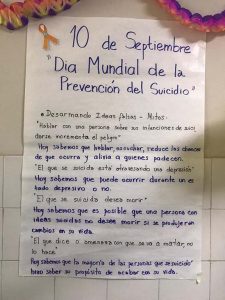 10 de Septiembre
"Dia Mundial de la
Prevención del Suicidio"
• Desarmando Ideas falsas - Mitos.
"Hablar con una persona sobre sus intenciones de suicidarse incrementa el peligro"
Hoy sabemos que hablar, escuchar, reduce las chances
de que ocurra y alivia a quienes padecen.
"El que se suicida está atravesando una depresión"
Hoy sabemos que puede ocurrir durante un estado depresivo o no.
"El que se suicida desea morir"
Hoy sabemos que es posible que una persona con
ideas suicidas no desean morir si se produjeran
cambios en su vida.
"El que dice o amenaza con que se va a matar, no
lo hace"
Hoy sabemos que la mayoría de las personas que se suicidó
hizo saber su propósito de acabar con su vida.